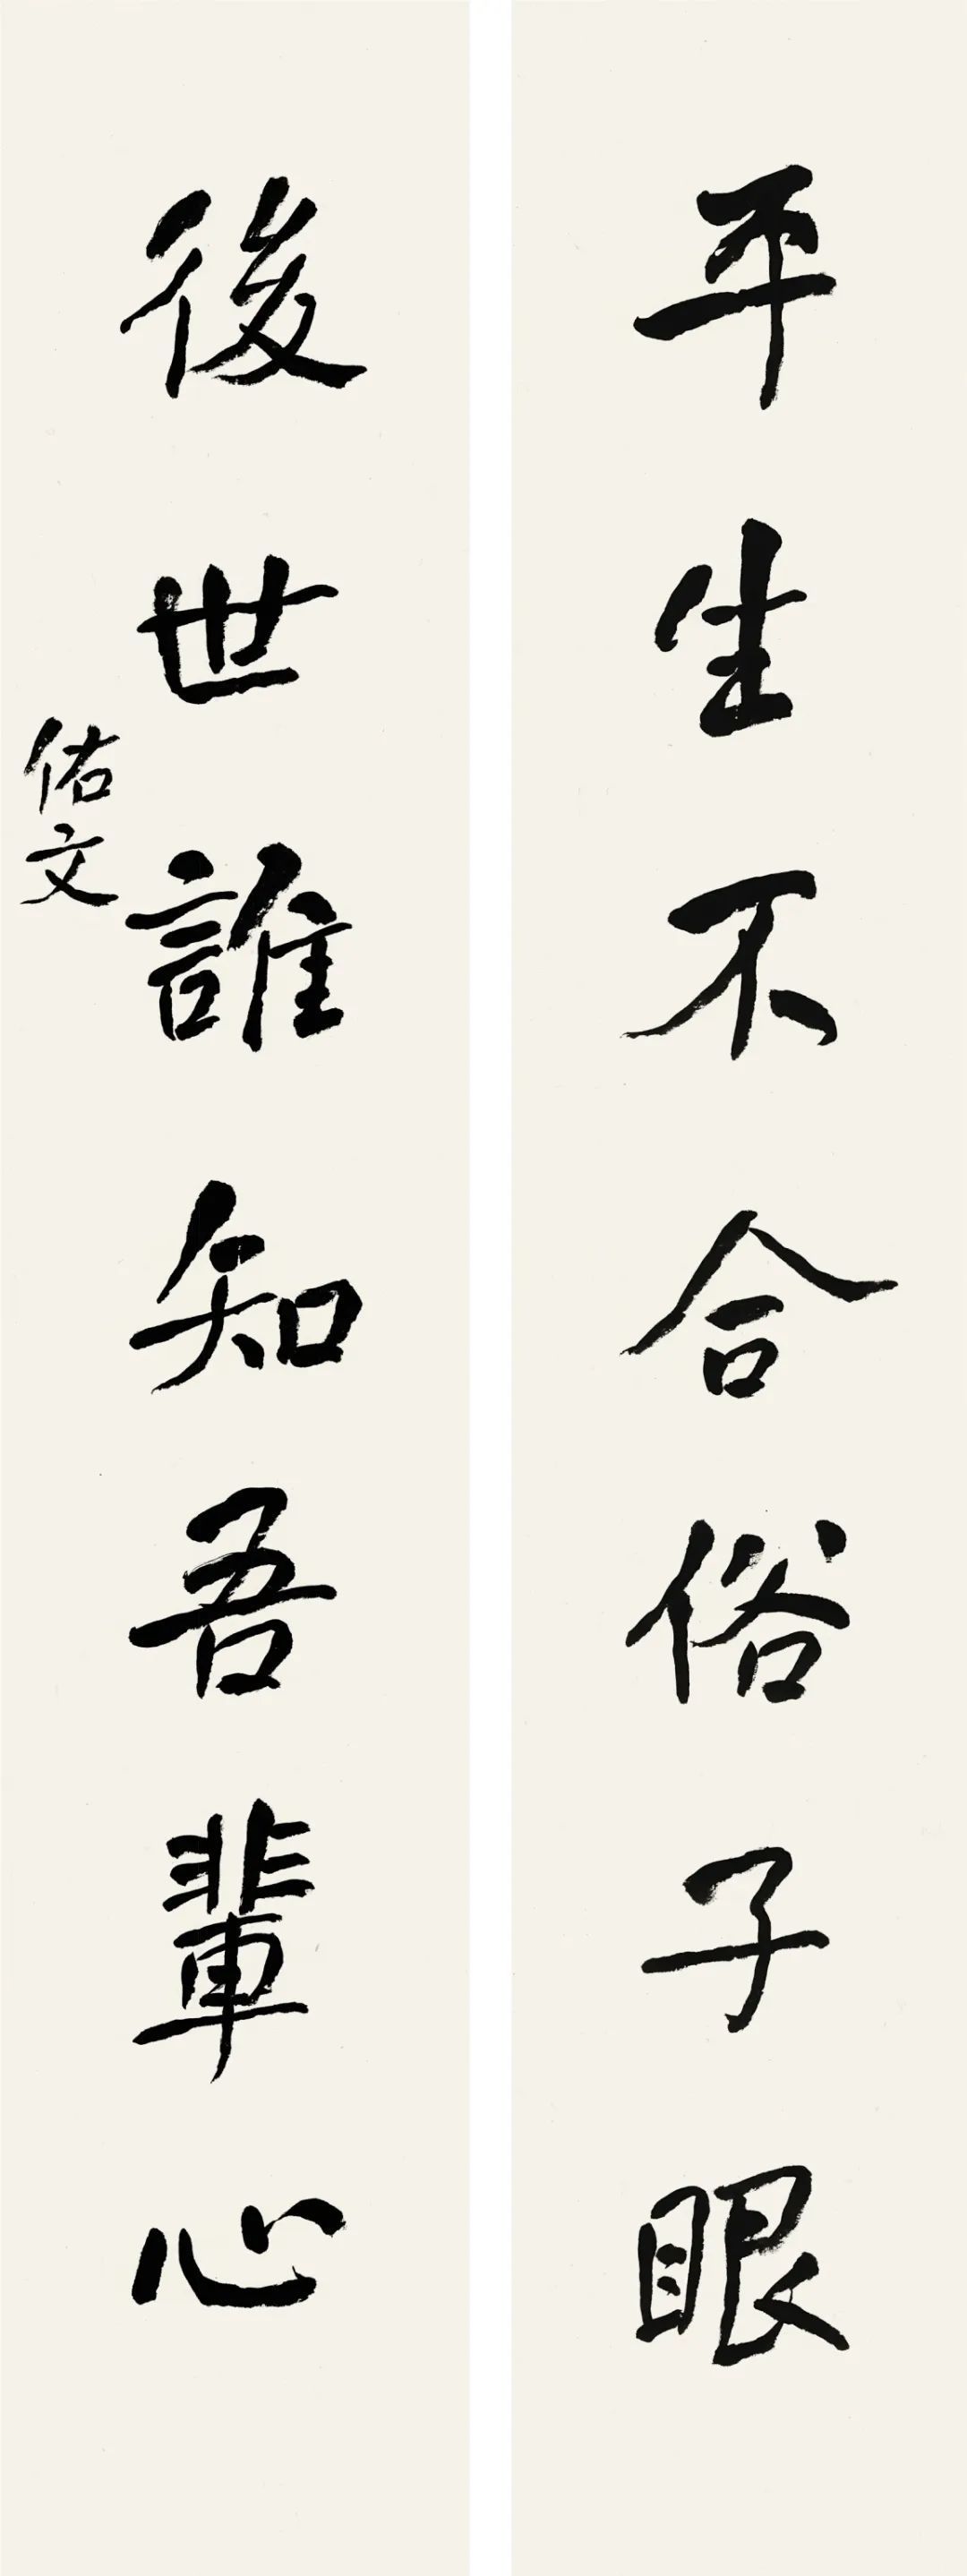 平生不合俗子眼
後世誰知吾輩心
佑文